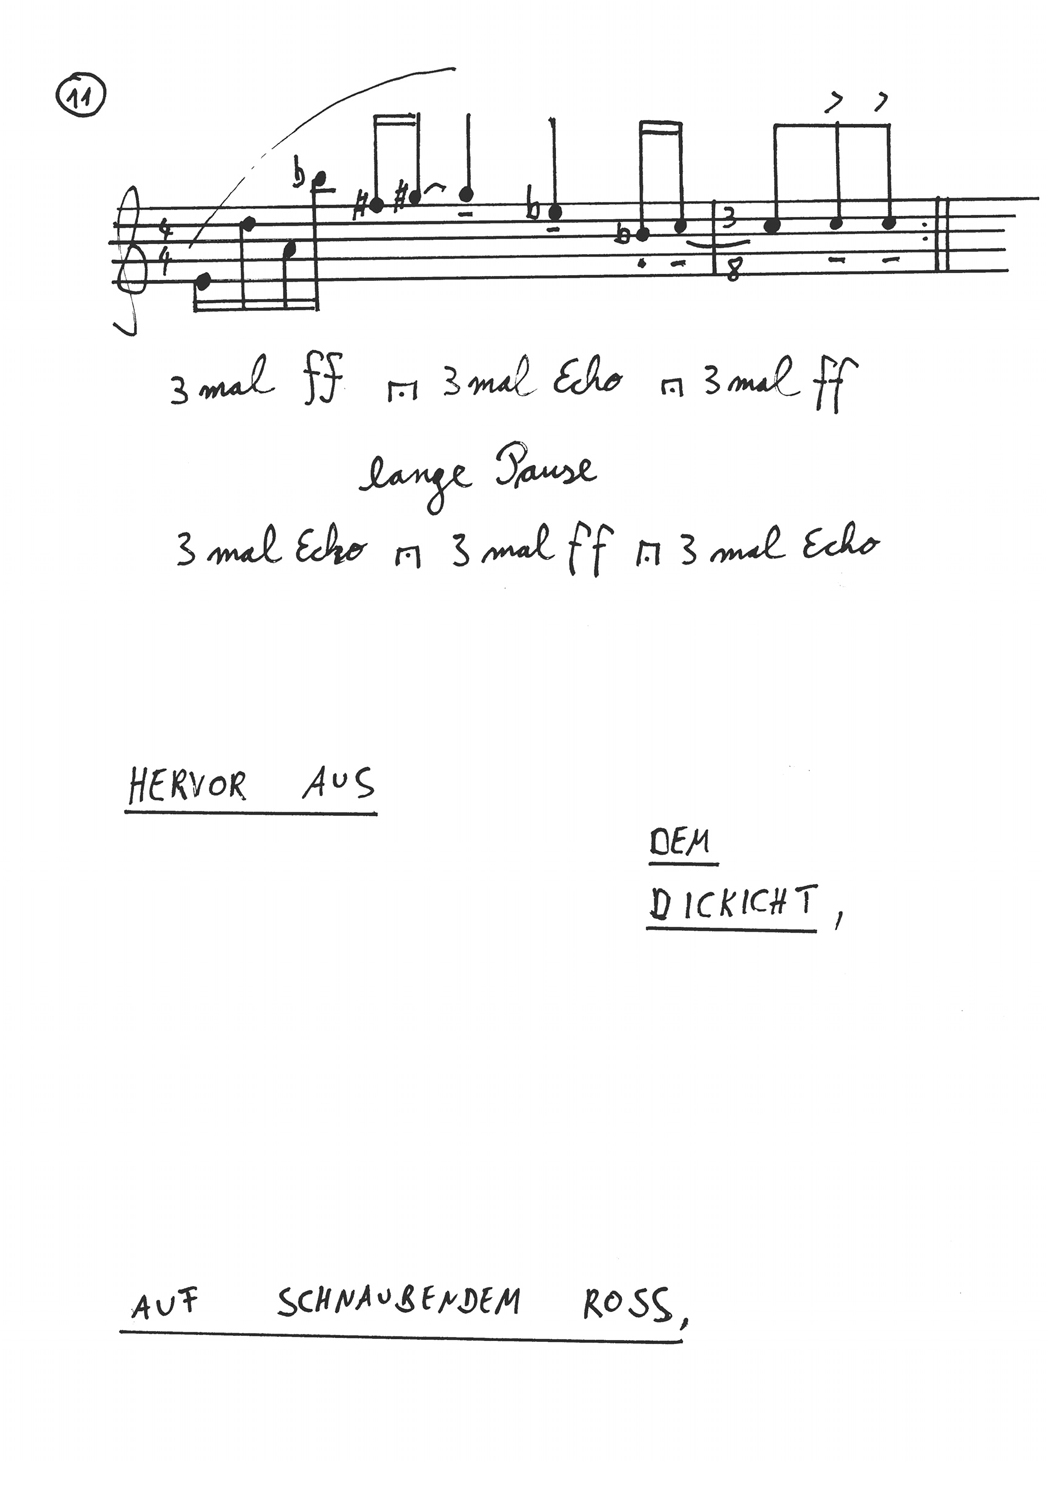 11
4 4 3 8
3 mal ff 3 mal Echo 3 mal ff
lange Pause
3 mal Echo 3 mal ff 3 mal Echo
HERVOR AUS
DEM
DICKICHT,
AUF SCHNAUBENDEM ROSS,